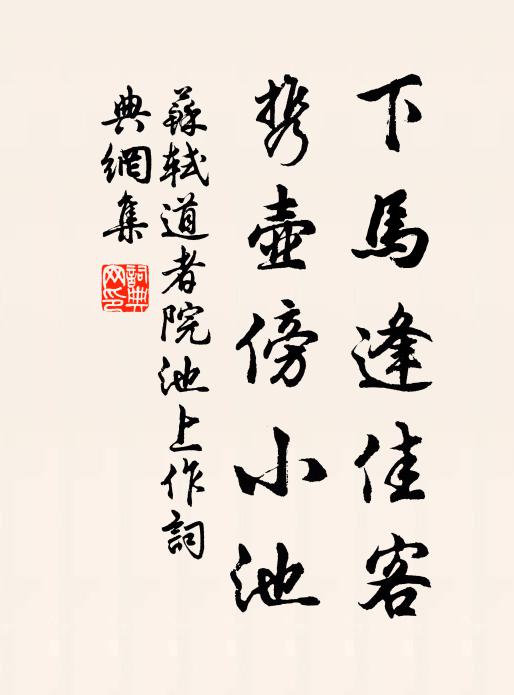 下馬逢佳客
携壺傍小池
蘇軾道者院池上作詞
典網集
詞典网印